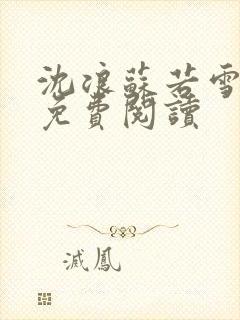 沈浪蘇若雪
免費閱讀
滅鳳